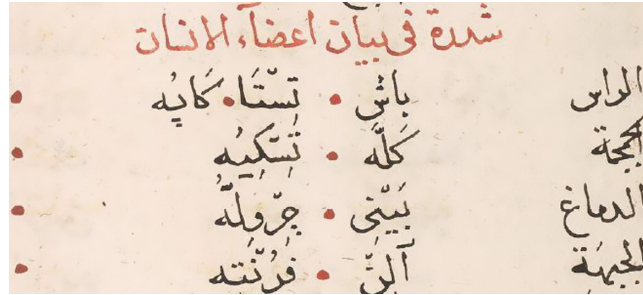 شذرة في بيان اعضآء الانسان
الراس باش تِسْتَا كَاپُه
الجمجمة كَلَّه تَسْكِيُه
الدماغ بَيْنِى جِرْوِلَّه
الجبهة آلِنْ فُرُنْتَه